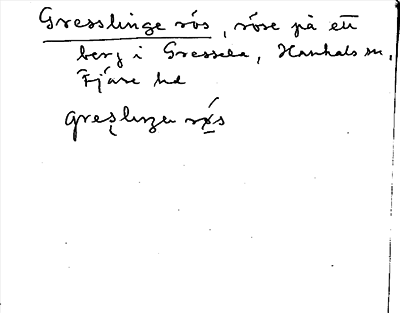 Gresslinge rös, röse på ett
berg i Gressela, Hanhals sn,
Fjäre hd